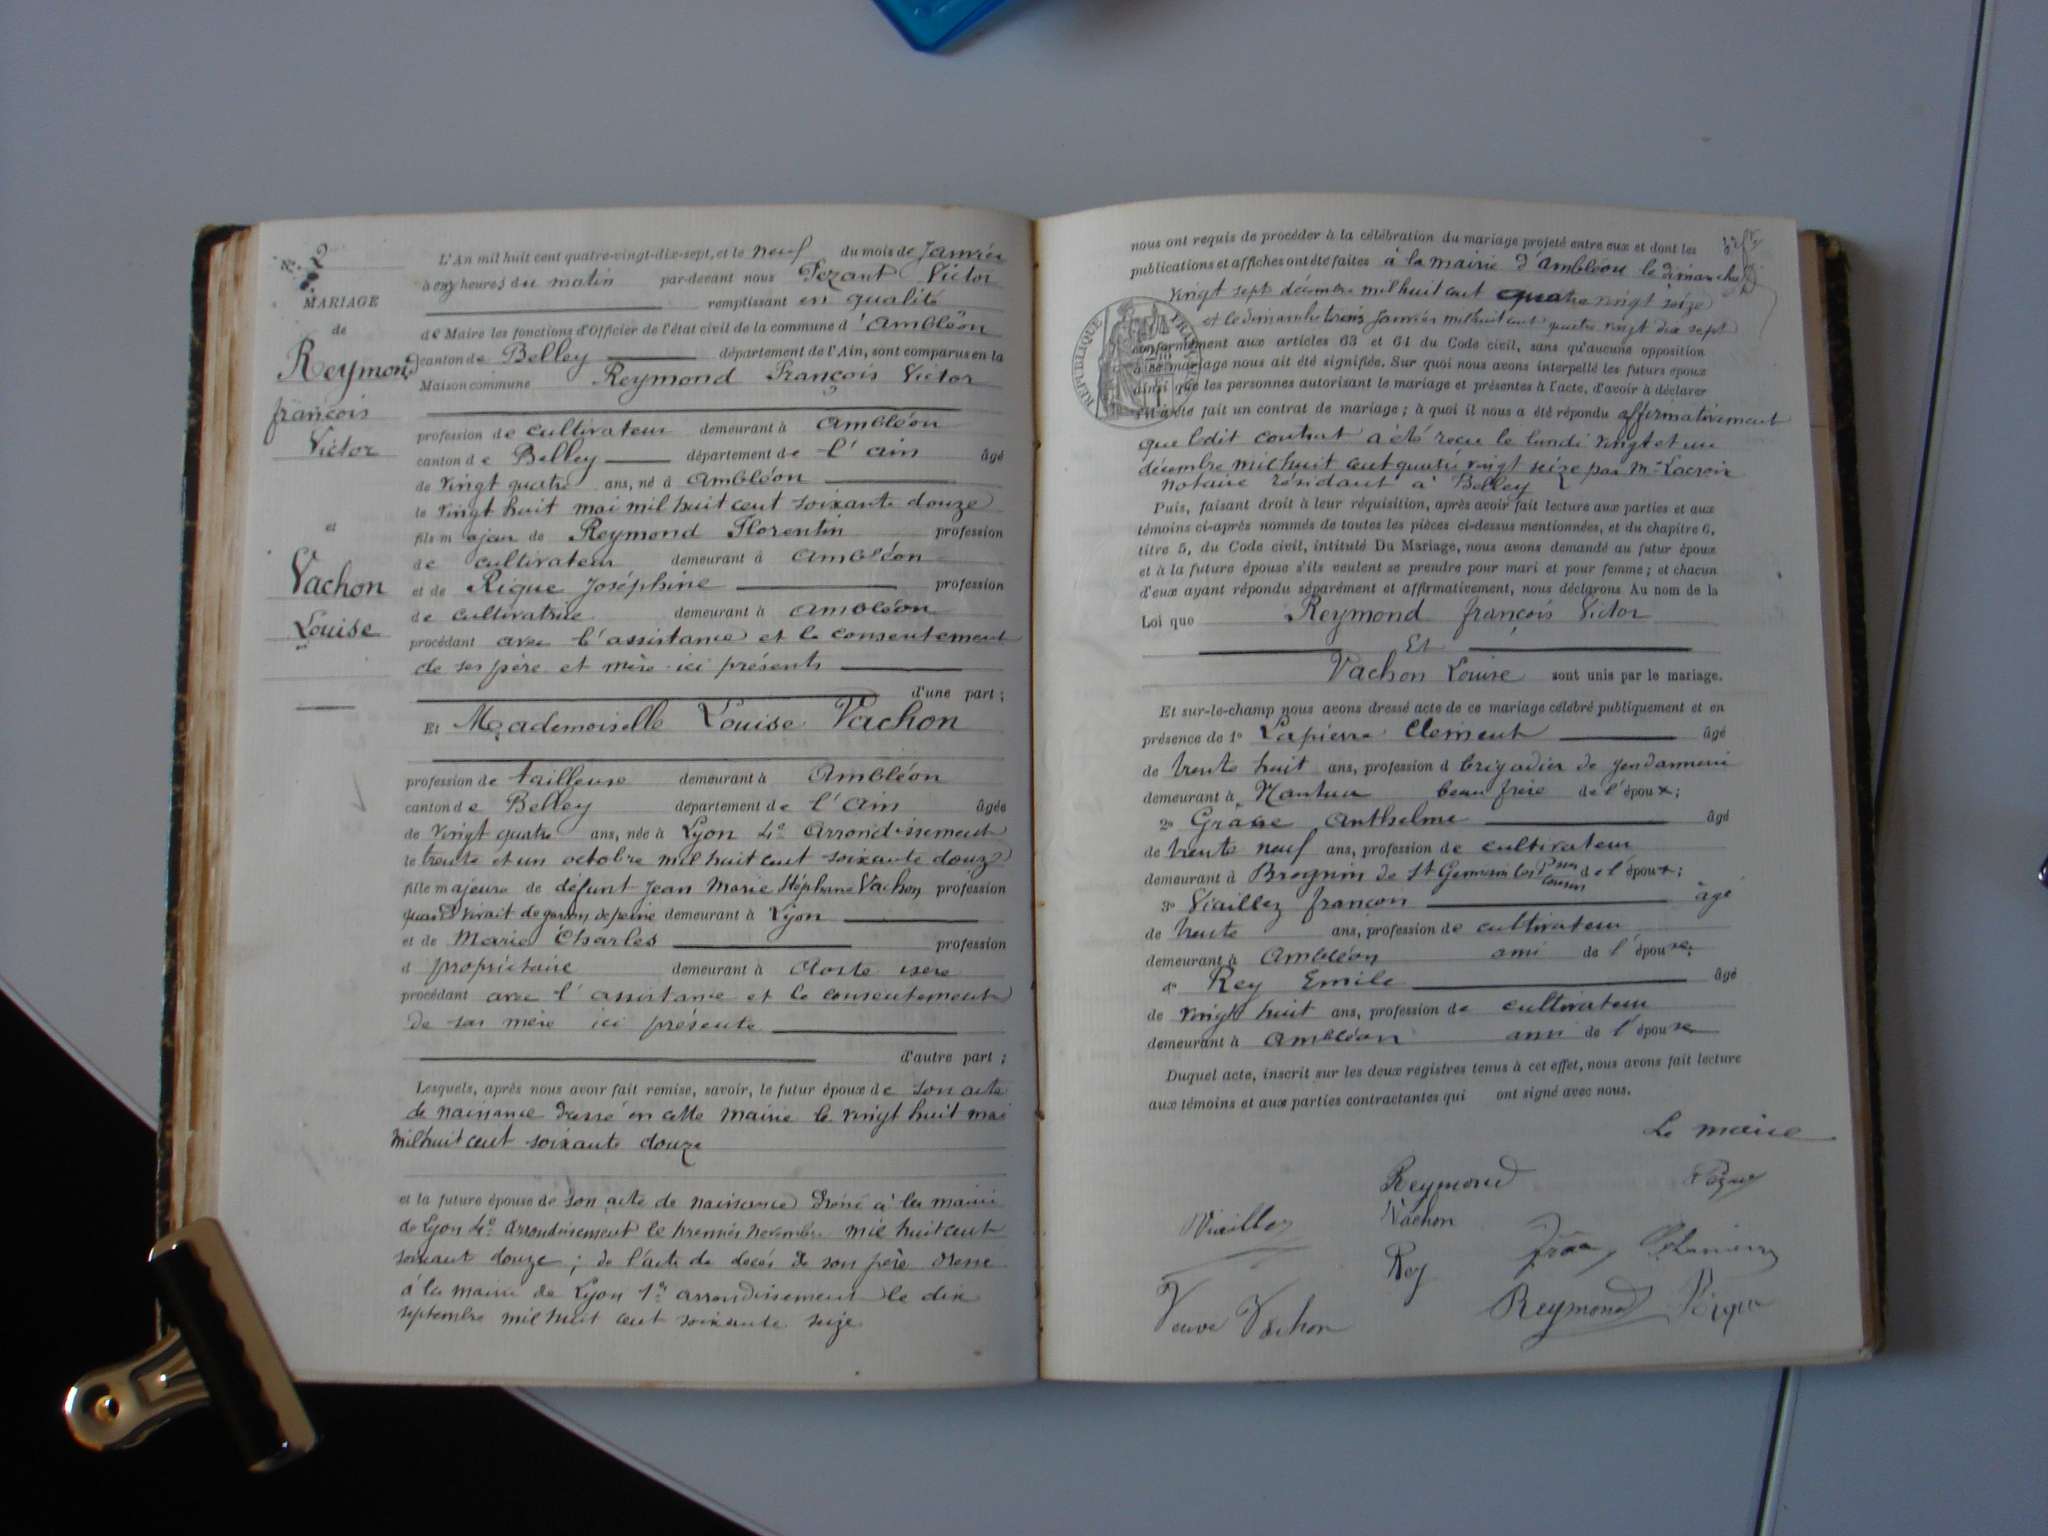 N° 2
MARIAGE
de
Reymond
françois
Victor
et
Vachon
Louise
L'An mil huit cent quatre-vingt-dix-sept, et le neuf du mois de Janvier
à onze heures du matin par-devant nous Pezant Victor
remplissant en qualité
de Maire les fonctions d'Officier de l'état civil de la commune d'Ambléon
canton de Belley département de l'Ain, sont comparus en la
Maison commune Reymond François Victor
profession de cultivateur demeurant à Ambléon
canton de Belley département de l'ain âgé
de vingt quatre ans, né à Ambléon
le vingt huit mai mil huit cent soixante douze
fils majeur de Reymond Florentin profession
de cultivateur demeurant à Ambléon
et de Rique Joséphine profession
de cultivatrice demeurant à Ambléon
procédant avec l'assistance et le consentement
de ses père et mère ici présents
d'une part ;
Et Mademoiselle Louise Vachon
profession de tailleuse demeurant à Ambléon
canton de Belley département de l'Ain âgée
de vingt quatre ans, née à Lyon 4e Arrondissement
le trente et un octobre mil huit cent soixante douze
fille majeure de défunt Jean Marie Stéphane Vachon profession
quand vivait de garçon de peine demeurant à Lyon
et de Marie Charles profession
d propriétaire demeurant à Aoste isère
procédant avec l'assistance et le consentement
de sa mère ici présente
d'autre part ;
Lesquels, après nous avoir fait remise, savoir, le futur époux de son acte
de naissance dressé en cette mairie le vingt huit mai
mil huit cent soixante douze
et la future épouse de son acte de naissance dressé à la mairie
de Lyon 4e Arrondissement le premier novembre mil huit cent
soixant douze ; de l'acte de decès de son père dressé
à la mairie de Lyon 1er arrondissement le dix
septembre mil huit cent soixante seize
nous ont requis de procéder à la célébration du mariage projeté entre eux et dont les
publications et affiches ont été faites à la mairie d'Ambléon le dimanche
vingt sept décembre mil huit cent quatre vingt seize
et le dimanche trois Janvier mil huit cent quatre vingt dix sept
RÉPUBLIQUE FRANÇAISE
conformément aux articles 63 et 64 du Code civil, sans qu'aucune opposition
à ce mariage nous ait été signifiée. Sur quoi nous avons interpellé les futurs époux
ainsi que les personnes autorisant le mariage et présentes à l'acte, d'avoir à déclarer
s'il a été fait un contrat de mariage ; à quoi il nous a été répondu affirmativement
que ledit contrat a été recu le lundi vingt et un
décembre mil huit cent quatre vingt seize par Me Lacroix
notaire résidant à Belley
Puis, faisant droit à leur réquisition, après avoir fait lecture aux parties et aux
témoins ci-après nommés de toutes les pièces ci-dessus mentionnées, et du chapitre 6,
titre 5, du Code civil, intitulé Du Mariage, nous avons demandé au futur époux
et à la future épouse s'ils veulent se prendre pour mari et pour femme ; et chacun
d'eux ayant répondu séparément et affirmativement, nous déclarons Au nom de la
Loi que Reymond françois Victor
Et
Vachon Louise sont unis par le mariage.
Et sur-le-champ nous avons dressé acte de ce mariage célébré publiquement et en
présence de 1° Lapierre Clement âgé
de trente huit ans, profession d brigadier de gendarmerie
demeurant à Nantua beau frère de l'époux ;
2° Anthelme âgé
de trente neuf ans, profession de cultivateur
demeurant à Brognin de St Germain les Psses cousin de l'époux ;
3° Viaillez françois âgé
de trente ans, profession de cultivateur
demeurant à Ambléon ami de l'épouse
4° Rey Emile âgé
de vingt huit ans, profession de cultivateur
demeurant à Ambléon ami de l'épouse
Duquel acte, inscrit sur les deux registres tenus à cet effet, nous avons fait lecture
aux témoins et aux parties contractantes qui ont signé avec nous.
Le maire
Reymond
Vachon
Viaillez
Rey
Veuve Vachon
Reymond Rique